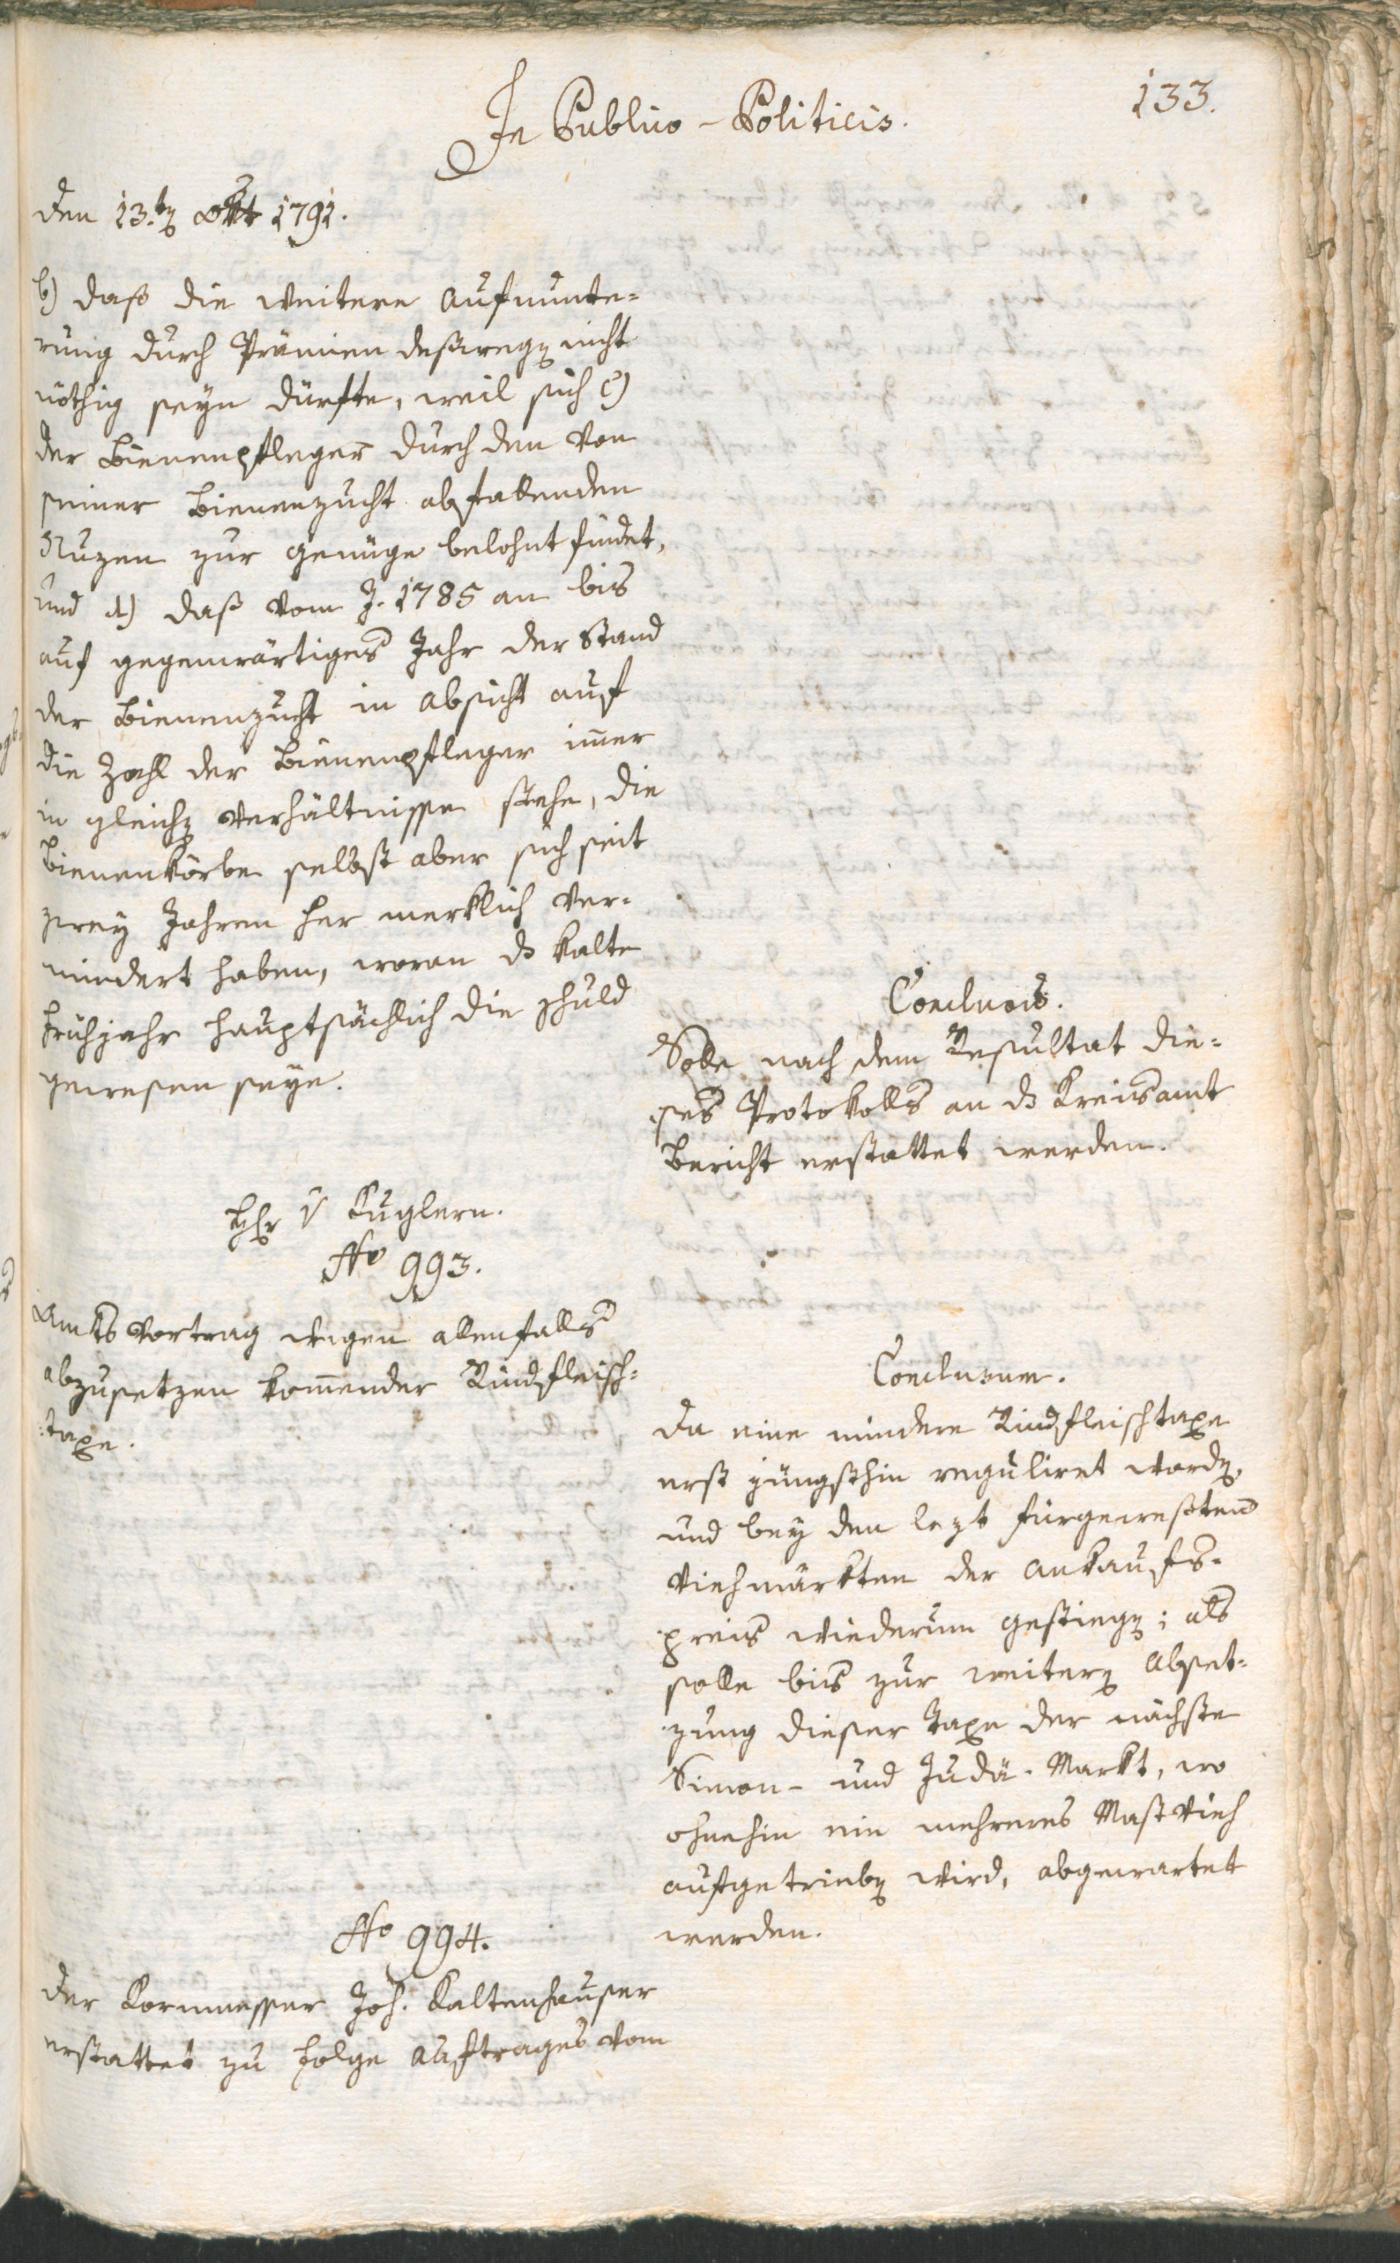 In Publico-Politicis.
133.
den 13.ten Okt 1791.
b) daß die weitere Aufmunte-
rung durch Prämien deßwegen nicht
nöthig seyn dürfte, weil sich c)
der Bienenpfleger durch den von
seiner Bienenzucht abfallenden
Nuzen zur Genüge belohnt findet,
und d) daß vom J. 1785 an bis
auf gegenwärtiges Jahr der Stand
der Bienenzucht in Absicht auf
die Zahl der Bienenpfleger immer
in gleichen Verhältnisse stehe, die
Bienenkörbe selbst aber sich seit
zwey Jahren her merklich ver-
mindert haben, woran das kalte
Frühjahr hauptsächlich die Schuld
gewesen seye.
Conclusis.
Solle nach dem Resultat die-
ses Protokolls an das Kreisamt
Bericht erstattet werden.
Hr v Kuglern.
No 993.
Amtsvortrag wegen allenfalls
abzusetzen kommender Rindfleisch-
taxe.
Conclusum.
Da eine mindere Rindfleischtaxe
erst jüngsthin reguliret worden,
und bey den lezt fürgewesten
Viehmärkten der Ankaufs-
preis wiederum gestiegen; als
solle bis zur weiteren Abset-
zung dieser Taxe der nächste
Simon- und Judä-Markt, wo
ohnehin ein mehreres Mastvieh
aufgetrieben wird, abgewartet
werden.
No 994.
Der Kornmesser Joh. Kaltenhauser
erstattet zu Folge Auftrages vom